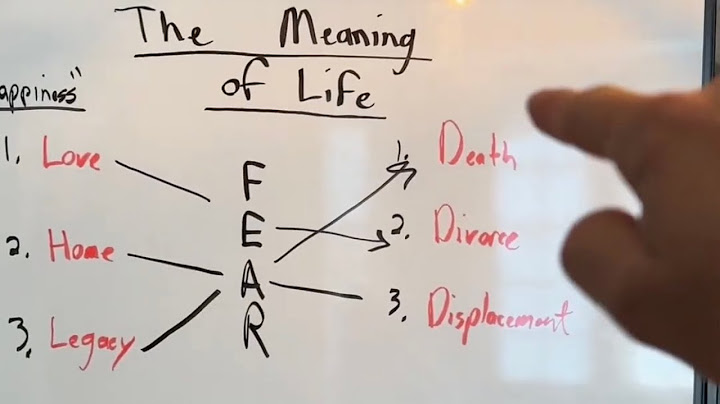 The Meaning
of Life
appiness"
1. Love
2. Home
3. Legacy
F
E
A
R
1. Death
2. Divorce
3. Displacement